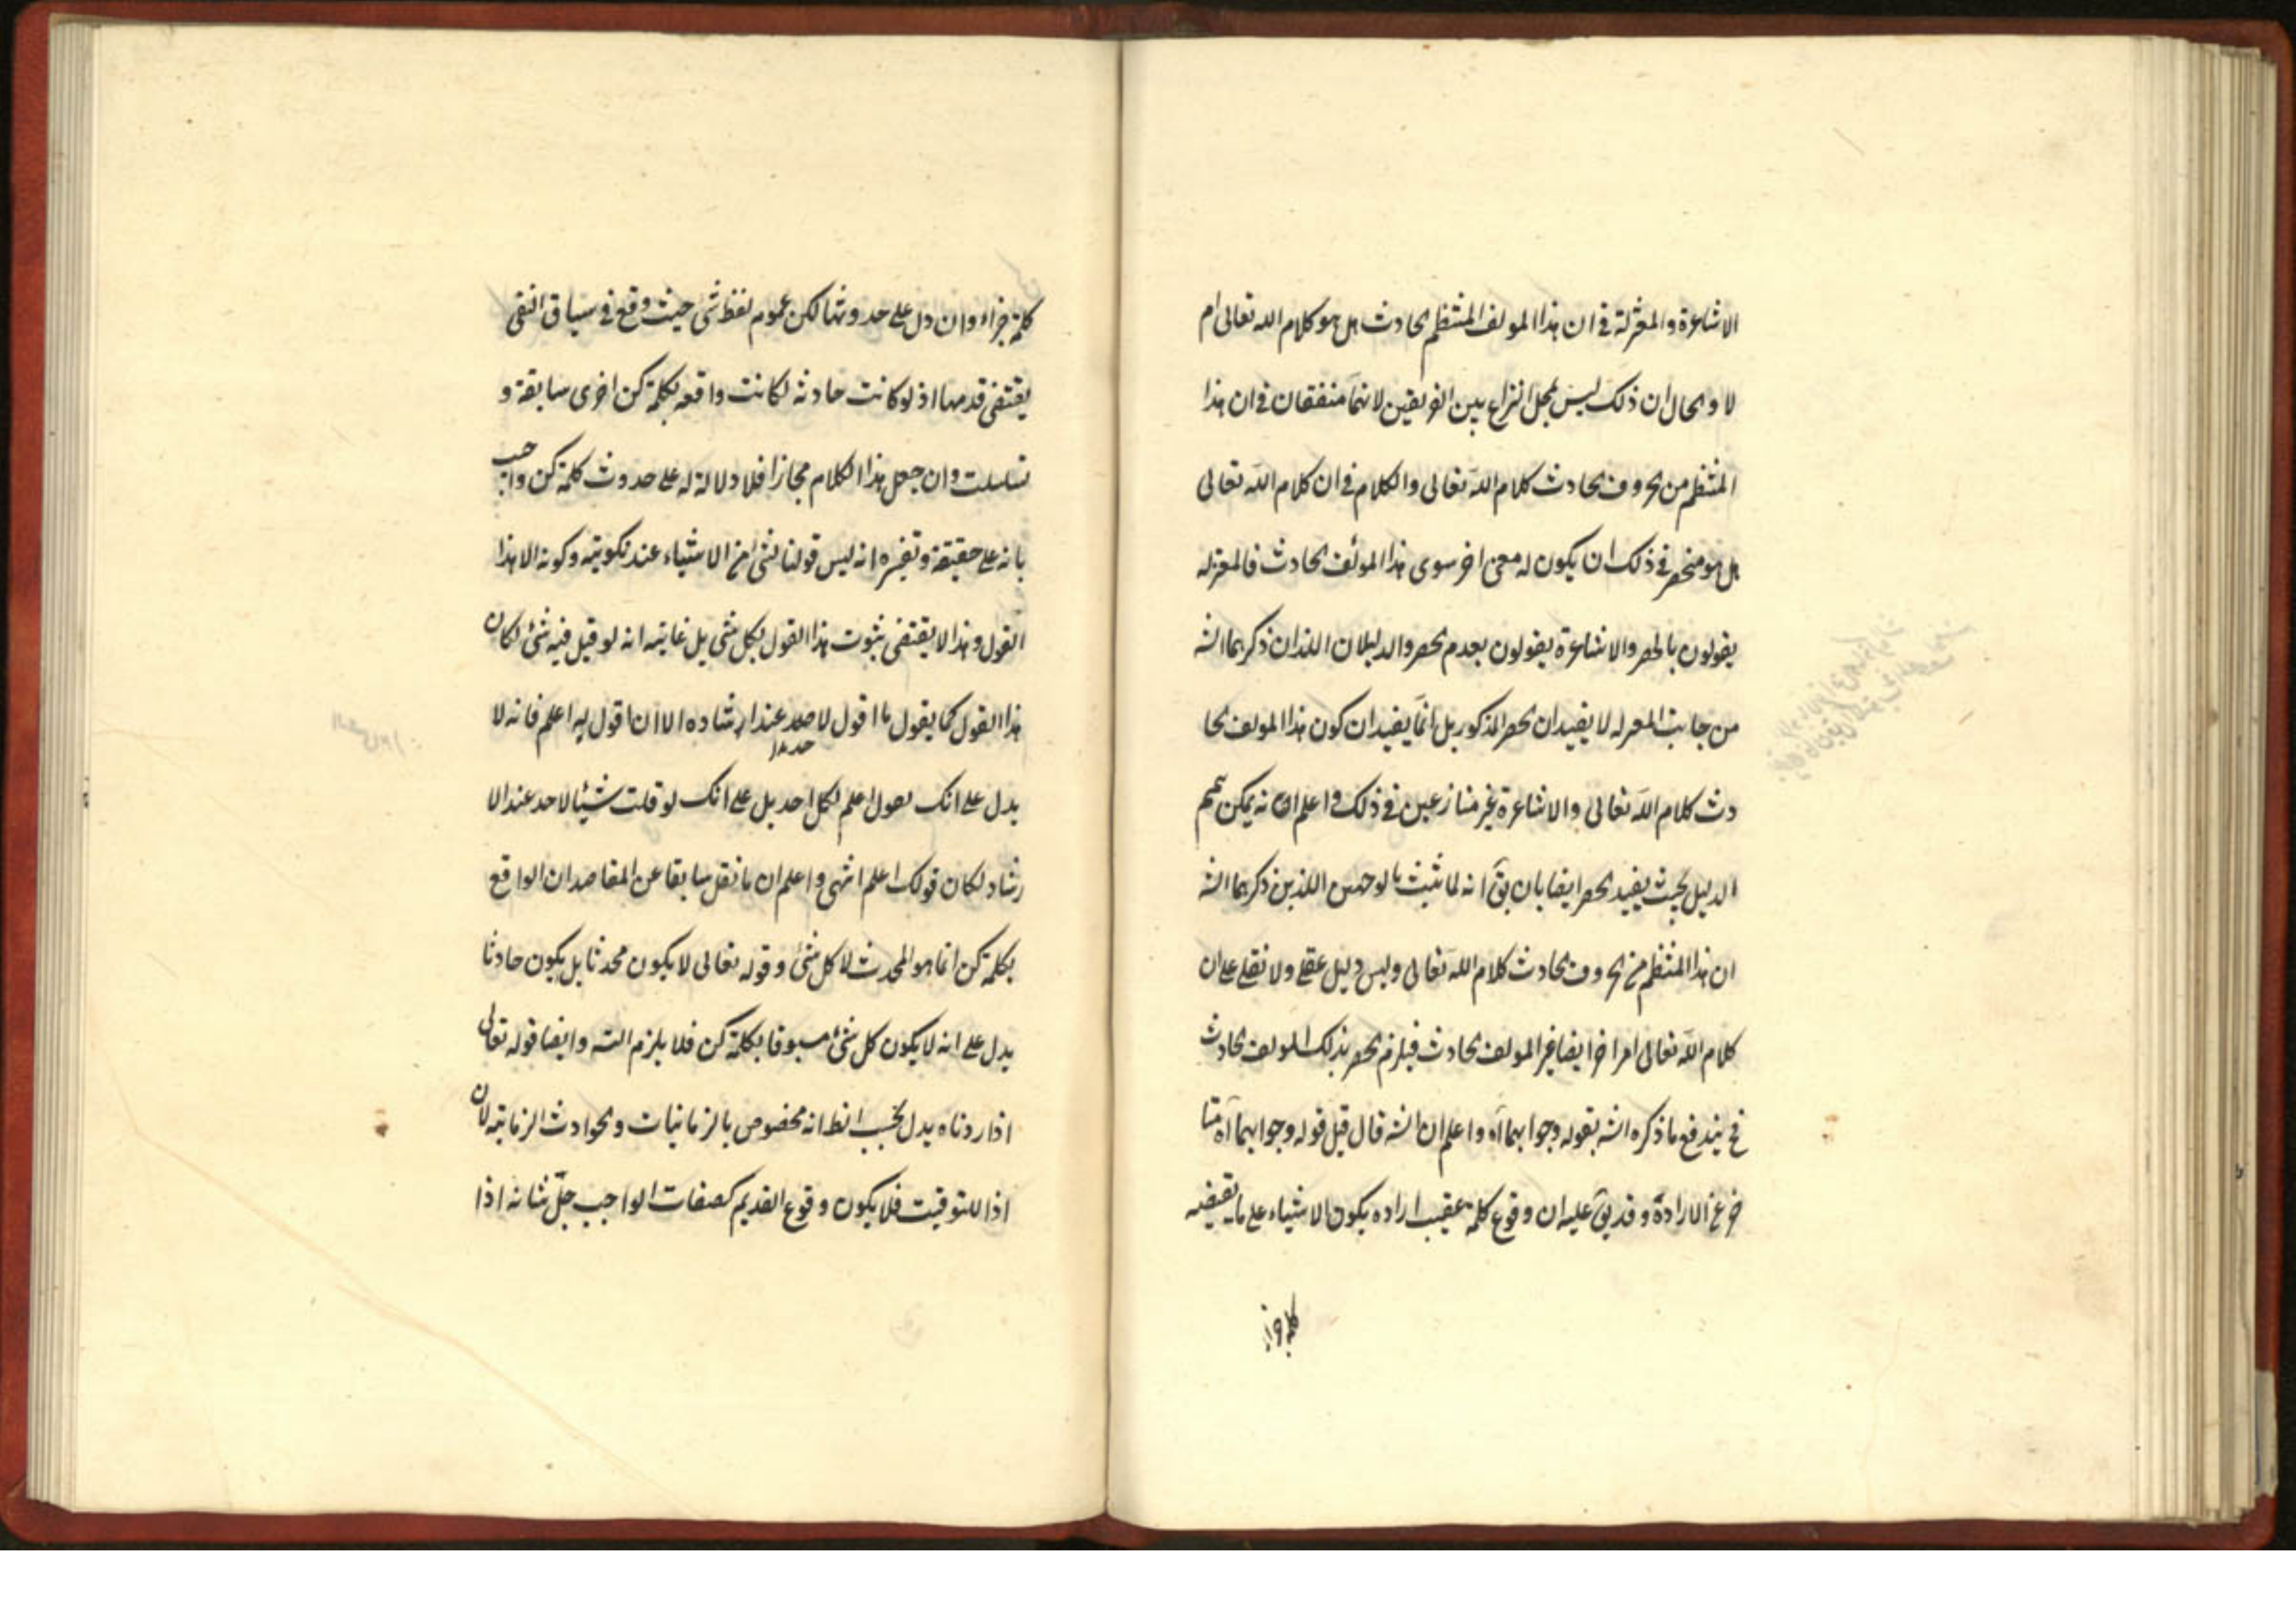 الاشاعرة والمعتزلة فى ان هذا المولف المنتظم الحادث هل هو كلام الله تعالى ام
لا والحال ان ذلك ليس بمحل النزاع بين الفريقين لانهما متفقان فى ان هذا
المنتظم من الحروف الحادث كلام الله تعالى والكلام فى ان كلام الله تعالى
هل هو منحصر فى ذلك ان يكون له معنى اخر سوى هذا المولف الحادث فالمعتزله
يقولون بالحصر والاشاعرة يقولون بعدم الحصر والدليلان اللذان ذكرهما الشه
من جانب المعتزله لا يفيدان الحصر المذكور بل انما يفيدان كون هذا المولف الحا
دث كلام الله تعالى والاشاعرة غير منازعين فى ذلك واعلم انه يمكن تتميم
الدليل بحيث يفيد الحصر ايضا بان يق انه لما ثبت بالوجهين اللذين ذكرهما الشه
ان هذا المنتظم من الحروف الحادث كلام الله تعالى وليس دليل عقلى ولا نقلى على ان
كلام الله تعالى امرا اخر ايضا غير المولف الحادث فيلزم الحصر بذلك المولف الحادث
فح يندفع ما ذكره الشه بقوله وجوابهما آه واعلم ان الشه قال قبل قوله وجوابهما آه متا
خر عن الارادة وقد يق عليه ان وقوع كلمة عقيب اراده يكون الاشياء على ما يقتضيه
كلمة جزاء وان دل على حدوثها لكن عموم لفظ شئ حيث وقع فى سياق النفى
يقتضى قدمها اذ لو كانت حادثه لكانت واقعه بكلمة كن اخرى سابقة و
تسلسلت وان جعل هذا الكلام مجازا فلا دلالة له على حدوث كلمة كن واجيب
بانه على حقيقة وتفسيره انه ليس قولنا لشئ من الاشياء عند تكوينه وكونه الا هذا
القول وهذا لا يقتضى ثبوت هذا القول لكل شى بل غايته انه لو قيل فيه شئ لكان
هذا القول كما يقول ما اقول لاحد عند ارشاده الا ان اقول له اعلم فانه لا
يدل على انك تقول اعلم لكل احد بل على انك لو قلت شيئا لاحد عند الا
رشاد لكان قولك اعلم انتهى واعلم ان ما نقل سابقا عن المقاصد ان الواقع
بكلمة كن انما هو المحدث لا كل شئ وقوله تعالى لا يكون محدثا بل يكون حادثا
يدل على انه لا يكون كل شئ مسبوقا بكلمة كن فلا يلزم التسه وايضا قوله تعالى
اذا اردناه يدل بحسب الظ انه مخصوص بالزمانيات والحوادث الزمانية لان
اذا للتوقيت فلا يكون وقوع القديم كصفات الواجب جل شانه اذا